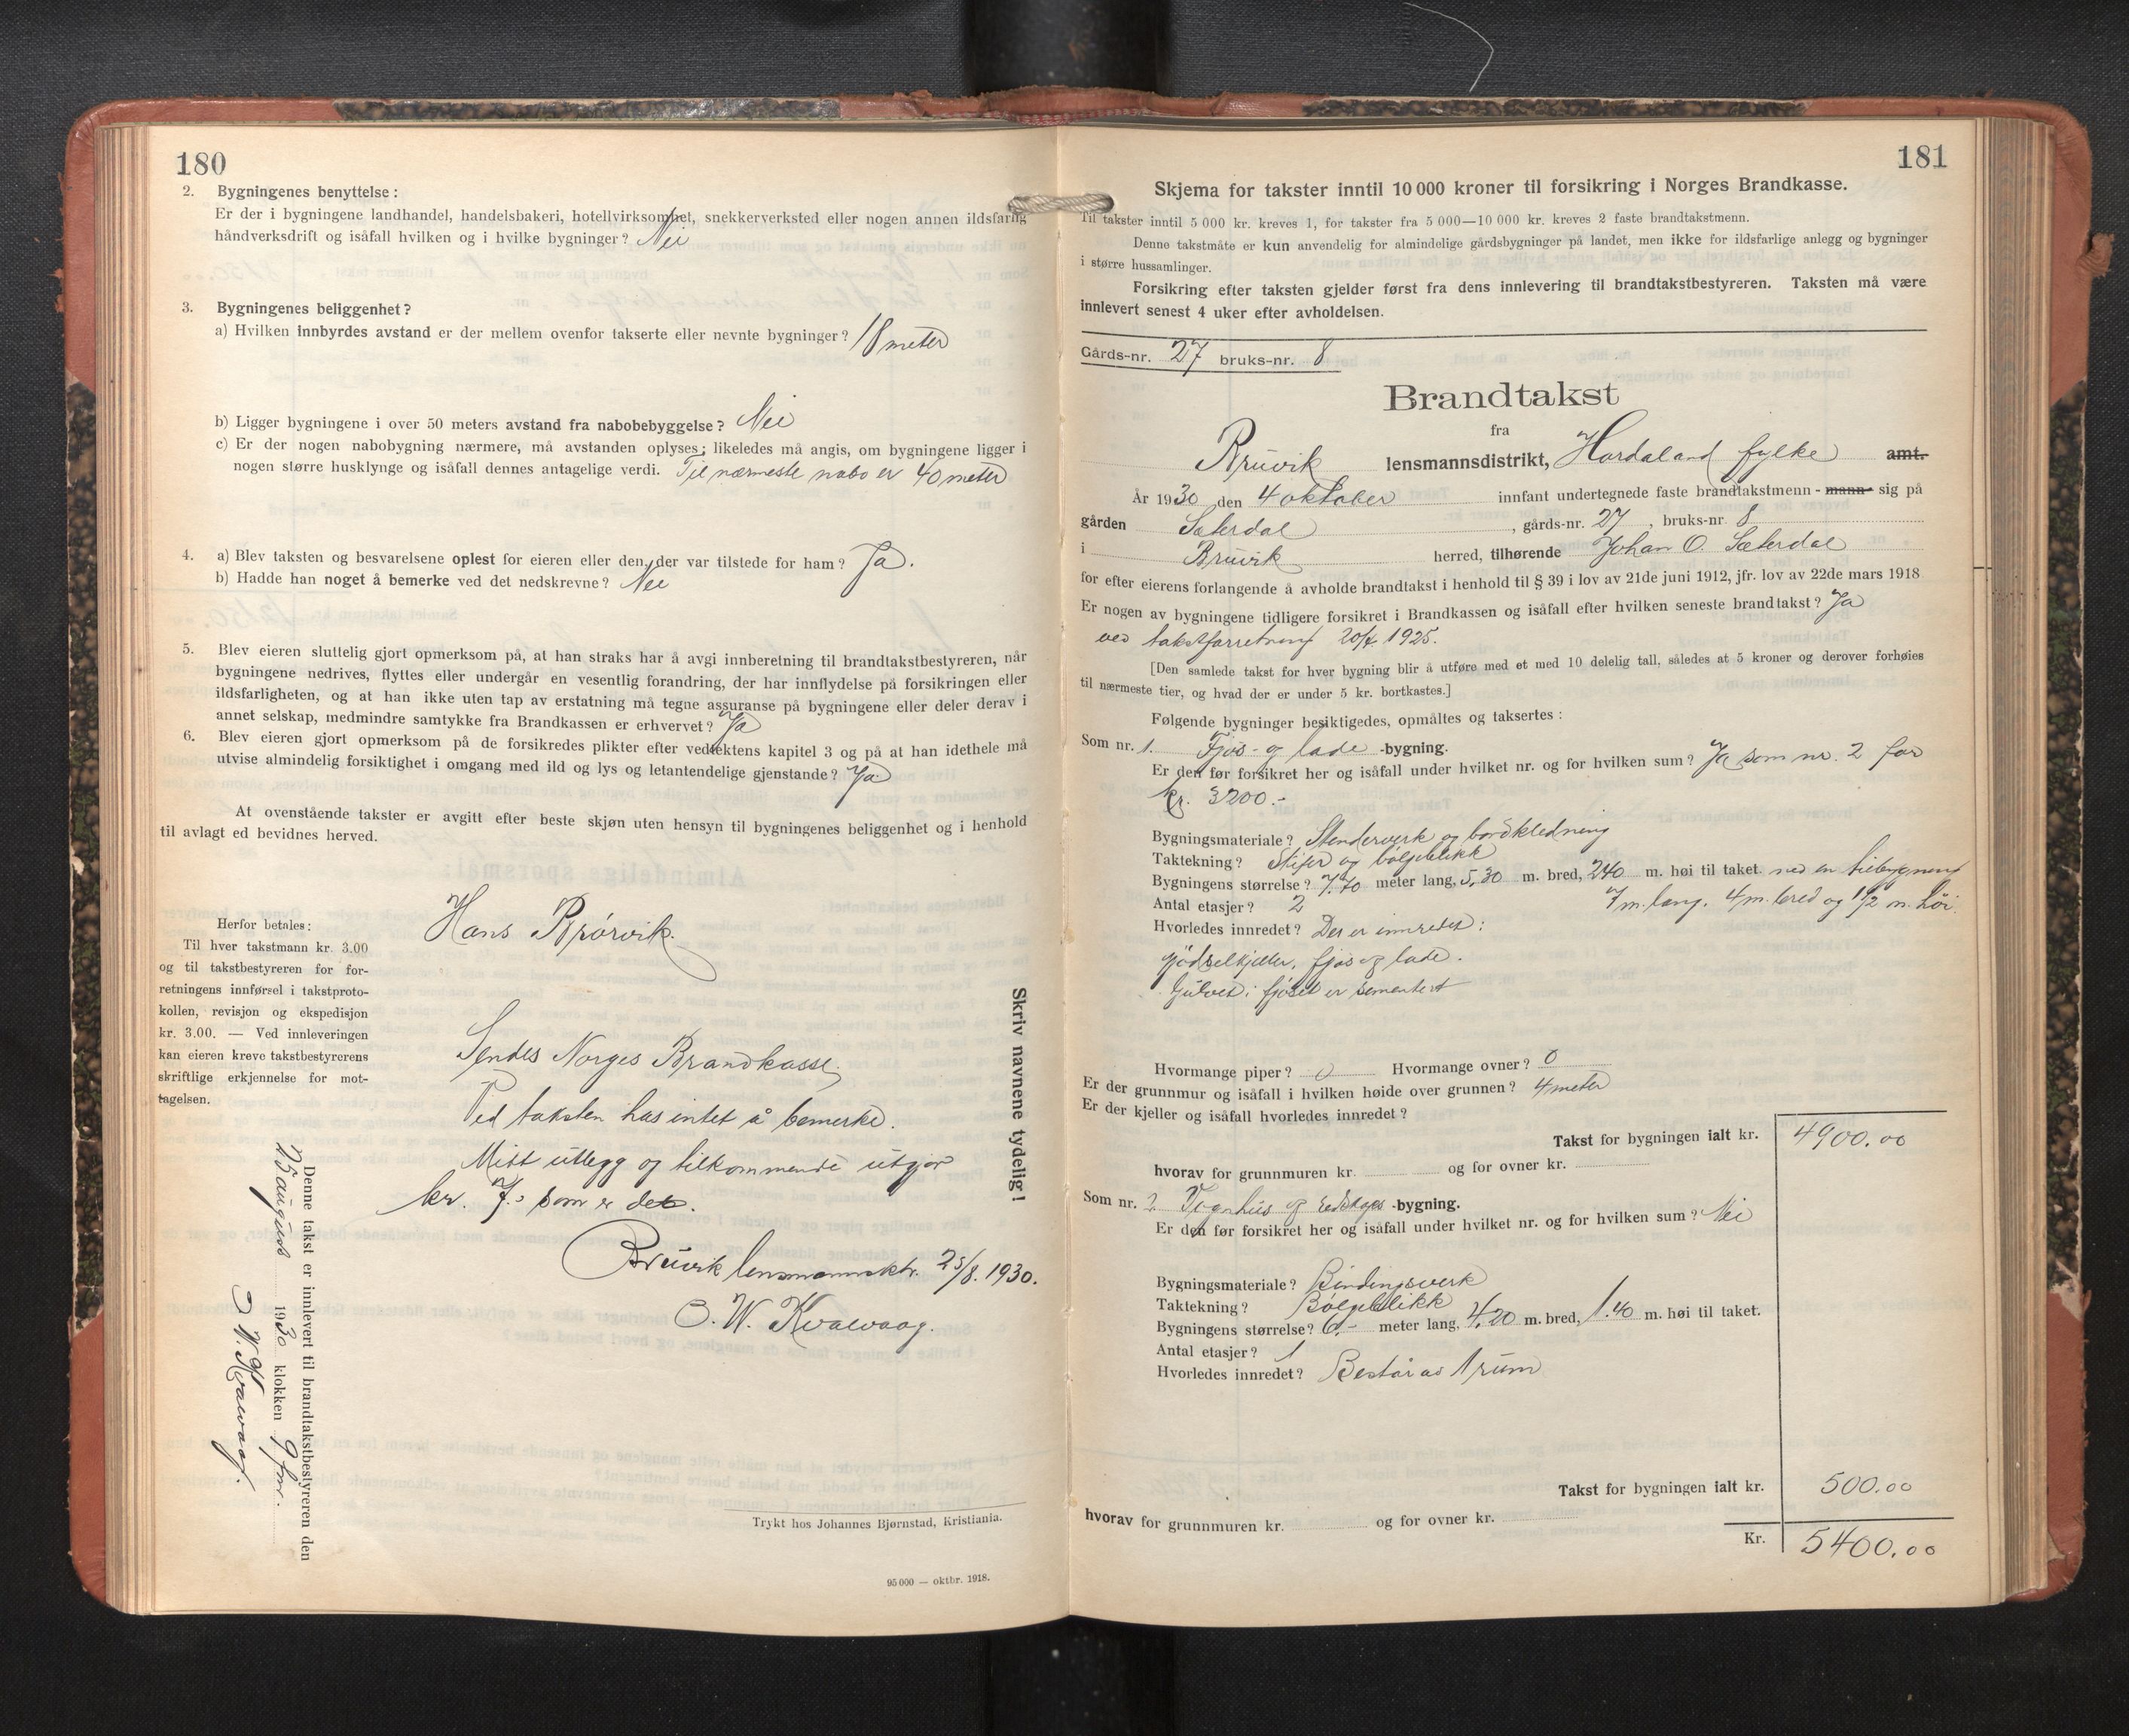 180
2. Bygningenes benyttelse:
Er der i bygningene landhandel, handelsbakeri, hotellvirksomhet, snekkerverksted eller nogen annen ildsfarlig
håndverksdrift og isåfall hvilken og i hvilke bygninger? Nei
3. Bygningenes beliggenhet?
a) Hvilken innbyrdes avstand er der mellem ovenfor takserte eller nevnte bygninger? 18 meter
b) Ligger bygningene i over 50 meters avstand fra nabobebyggelse? Nei
c) Er der nogen nabobygning nærmere, må avstanden oplyses; likeledes må angis, om bygningene ligger i
nogen større husklynge og isåfall dennes antagelige verdi. Til nærmeste nabo er 40 meter
4. a) Blev taksten og besvarelsene oplest for eieren eller den, der var tilstede for ham? Ja.
b) Hadde han noget å bemerke ved det nedskrevne? Nei
5. Blev eieren sluttelig gjort opmerksom på, at han straks har å avgi innberetning til brandtakstbestyreren, når
bygningene nedrives, flyttes eller undergår en vesentlig forandring, der har innflydelse på forsikringen eller
ildsfarligheten, og at han ikke uten tap av erstatning må tegne assuranse på bygningene eller deler derav i
annet selskap, medmindre samtykke fra Brandkassen er erhvervet? Ja
6. Blev eieren gjort opmerksom på de forsikredes plikter efter vedtektens kapitel 3 og på at han idethele må
utvise almindelig forsiktighet i omgang med ild og lys og letantendelige gjenstande? Ja.
At ovenstående takster er avgitt efter beste skjøn uten hensyn til bygningenes beliggenhet og i henhold
til avlagt ed bevidnes herved.
Hans Brørvik.
Herfor betales:
Til hver takstmann kr. 3.00
og til takstbestyreren for for-
retningens innførsel i takstproto-
kollen, revisjon og ekspedisjon
kr. 3.00. — Ved innleveringen
kan eieren kreve takstbestyrerens
skriftlige erkjennelse for mot-
tagelsen.
Sendes Norges Brandkasse.
Ved taksten has intet å bemerke.
Mitt utlegg og tilkommende utgjør
kr. 7.- som er det.
Bruvik lensmannsktr. 25/8. 1930.
O. W. Kvalvaag.
Skriv navnene tydelig!
Denne takst er innlevert til brandtakstbestyreren den
25 august 1930 klokken 9 fm.
O W Kvalvaag.
Trykt hos Johannes Bjørnstad, Kristiania.
95 000 — oktbr. 1918.
181
Skjema for takster inntil 10 000 kroner til forsikring i Norges Brandkasse.
Til takster inntil 5 000 kr. kreves 1, for takster fra 5 000—10 000 kr. kreves 2 faste brandtakstmenn.
Denne takstmåte er kun anvendelig for almindelige gårdsbygninger på landet, men ikke for ildsfarlige anlegg og bygninger
i større hussamlinger.
Forsikring efter taksten gjelder først fra dens innlevering til brandtakstbestyreren. Taksten må være
innlevert senest 4 uker efter avholdelsen.
Gårds-nr. 27 bruks-nr. 8
Brandtakst
fra
Bruvik lensmannsdistrikt, Hordaland fylke amt.
År 1930 den 4 oktober innfant undertegnede faste brandtakstmenn - mann- sig på
gården Sæterdal, gårds-nr. 27, bruks-nr. 8
i Bruvik herred, tilhørende Johan O. Sæterdal
for efter eierens forlangende å avholde brandtakst i henhold til § 39 i lov av 21de juni 1912, jfr. lov av 22de mars 1918
Er nogen av bygningene tidligere forsikret i Brandkassen og isåfall efter hvilken seneste brandtakst? Ja
ved takstforretning 20/4 1925.
[Den samlede takst for hver bygning blir å utføre med et med 10 delelig tall, således at 5 kroner og derover forhøies
til nærmeste tier, og hvad der er under 5 kr. bortkastes.]
Følgende bygninger besiktigedes, opmåltes og taksertes:
Som nr. 1. Fjøs- og lade -bygning.
Er den før forsikret her og isåfall under hvilket nr. og for hvilken sum? Ja som nr. 2 for
kr. 3200.-
Bygningsmateriale? Stenderverk og bordkledning
Taktekning? Skifer og bølgeblikk
Bygningens størrelse? 7.40 meter lang, 5,30 m. bred, 240 m. høi til taket. med en tilbygning
Antal etasjer? 2 7 m. lang, 4 m. bred og 1½ m. høi.
Hvorledes innredet? Der er innredet:
gjødselkjeller, fjøs og lade.
Gulvet i fjøset er sementert
Hvormange piper? 0 Hvormange ovner? 0
Er der grunnmur og isåfall i hvilken høide over grunnen? 4 meter
Er der kjeller og isåfall hvorledes innredet?
Takst for bygningen ialt kr. 4900.00
hvorav for grunnmuren kr. og for ovner kr.
Som nr. 2 Vognhus og redskaps -bygning.
Er den før forsikret her og isåfall under hvilket nr. og for hvilken sum? Nei
Bygningsmateriale? Bindingsverk
Taktekning? Bølgeblikk
Bygningens størrelse? 6,- meter lang, 4,20 m. bred, 1.40 m. høi til taket.
Antal etasjer? 1
Hvorledes innredet? Består av 1 rum
Takst for bygningen ialt kr. 500.00
hvorav for grunnmuren kr. og for ovner kr.
Kr. 5400.00